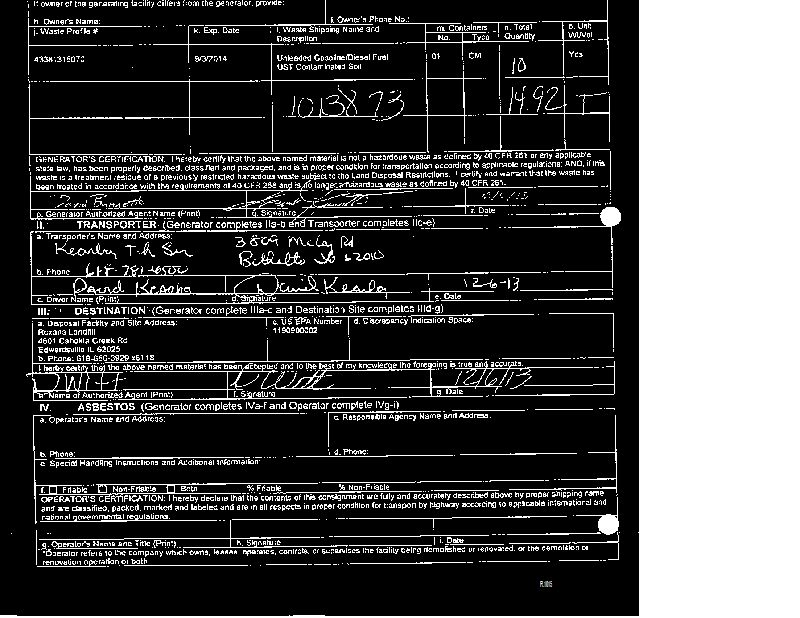 If owner of the generating facility differs from the generator, provide:
h. Owner's Name: i. Owner's Phone No.:
j. Waste Profile # k. Exp. Date l. Waste Shipping Name and Description m. Containers No. Type n. Total Quantity o. Unit Wt/Vol
9/3/2014 Unleaded Gasoline/Diesel Fuel 01 CM 10 Yes
UST Contaminated Soil
1013873 14.92 T
GENERATOR'S CERTIFICATION: I hereby certify that the above named material is not a hazardous waste as defined by 40 CFR 261 or any applicable
state law, has been properly described, classified and packaged, and is in proper condition for transportation according to applicable regulations; AND, if this
waste is a treatment residue of a previously restricted hazardous waste subject to the Land Disposal Restrictions. I certify and warrant that the waste has
been treated in accordance with the requirements of 40 CFR 268 and is no longer a hazardous waste as defined by 40 CFR 261.
p. Generator Authorized Agent Name (Print) q. Signature r. Date
II. TRANSPORTER (Generator completes IIa-b and Transporter completes IIc-e)
a. Transporter's Name and Address:
3809 McCoy Rd
b. Phone 618-781-6500
David
12-6-13
c. Driver Name (Print) d. Signature e. Date
III. DESTINATION (Generator complete IIIa-c and Destination Site completes IIId-g)
a. Disposal Facility and Site Address: c. US EPA Number d. Discrepancy Indication Space:
Roxana Landfill 1190900002
4601 Cahokia Creek Rd
Edwardsville IL 62025
b. Phone: 618-650-3929 x6118
I hereby certify that the above named material has been accepted and to the best of my knowledge the foregoing is true and accurate.
12/6/13
e. Name of Authorized Agent (Print) f. Signature g. Date
IV. ASBESTOS (Generator completes IVa-f and Operator complete IVg-i)
a. Operator's Name and Address: c. Responsible Agency Name and Address:
b. Phone: d. Phone:
e. Special Handling Instructions and Additional Information:
f. Friable Non-Friable Both % Friable % Non-Friable
OPERATOR'S CERTIFICATION: I hereby declare that the contents of this consignment are fully and accurately described above by proper shipping name
and are classified, packed, marked and labeled and are in all respects in proper condition for transport by highway according to applicable international and
national governmental regulations.
g. Operator's Name and Title (Print) h. Signature i. Date
*Operator refers to the company which owns, leases, operates, controls, or supervises the facility being demolished or renovated, or the demolition or
renovation operation or both